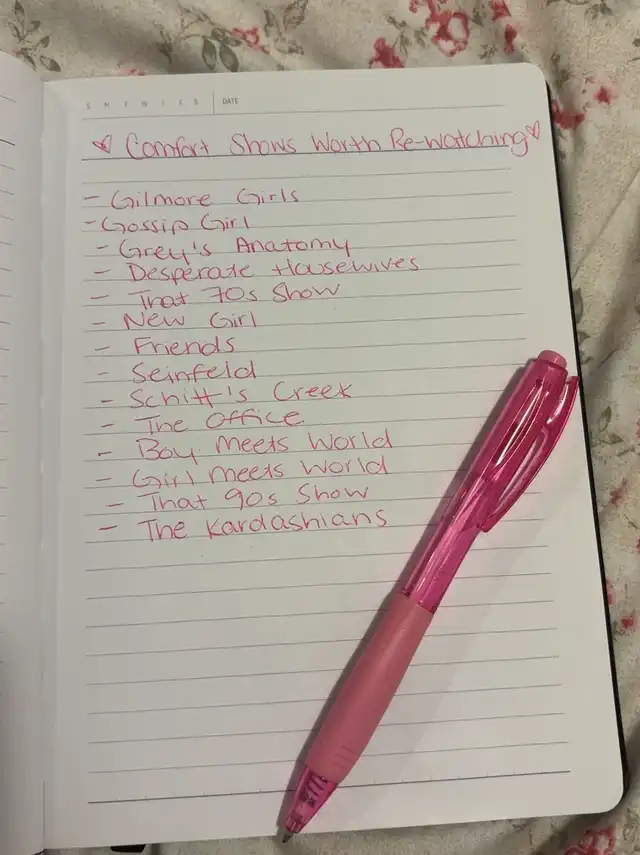 S M T W T F S DATE
♡ Comfort Shows Worth Re-watching ♡
- Gilmore Girls
- Gossip Girl
- Grey's Anatomy
- Desperate Housewives
- That 70s Show
- New Girl
- Friends
- Seinfeld
- Schitt's Creek
- The Office
- Boy Meets World
- Girl Meets World
- That 90s Show
- The Kardashians